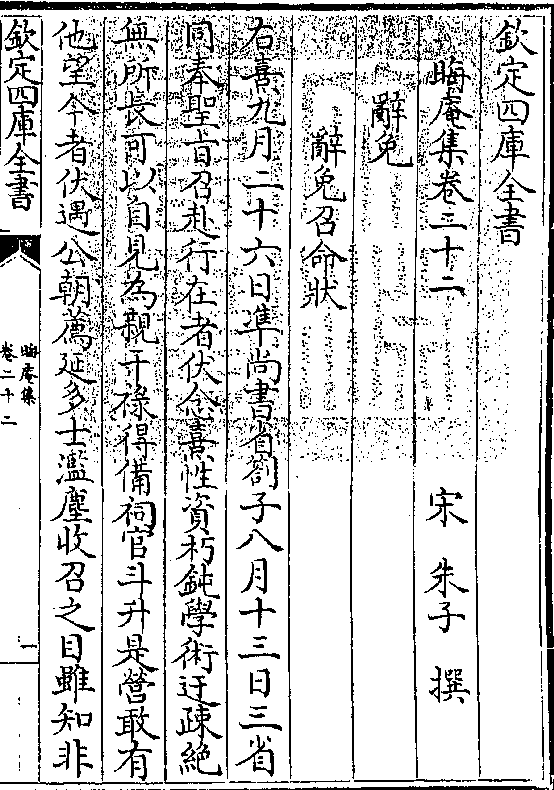 欽定四庫全書
晦庵集卷二十二
宋 朱子 撰
辭免
辭免召命狀
右熹九月二十六日準尚書省劄子八月十三日三省
同奉聖旨召赴行在者伏念熹性資朽鈍學術迂疎絶
無所長可以自見為親干祿得備祠官斗升是營敢有
他望今者伏遇公朝薦延多士濫塵收召之目雖知非
欽定四庫全書
晦庵集
卷二十二
一